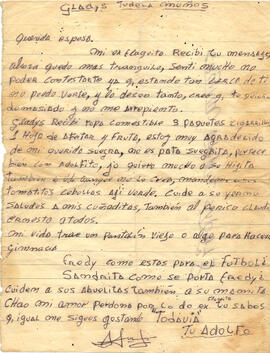 GLADYS
Querida esposa.
Mi ex flaquita. Recibí tu mensaje,
ahora quedo mas tranquilo, senti mucho no
poder contestarte ya q, estando tan cerca de ti
no puedo verte, y lo deseo tanto, creo q, te quiero
demasiado y no me arrepiento.
Gladys Recibí ropa comestible 3 paquetes cigarrillos
1 Hoja de afeitar y fruta, estoy muy agradecido
de mi querida suegra, no es pata suegrita,
bien con Adolfito, yo quiero mucho a su Hijita
también
tomatitos cebollas aji verde. Cuide a su yerno
Saludos a mis cuñaditas, también al perico
ernesto q todos.
Mi vida trae un pantalón viejo o algo para Hacer
Gimnacia
Fredy como estas para el FUTBOL
Sandrita como se porta Fredy?
Cuiden a sus Abuelitas también, a su mamita
Chao mi amor perdona por lo de ex tu sabes
q, igual me sigues gustando TODAVIA
TU ADOLFO